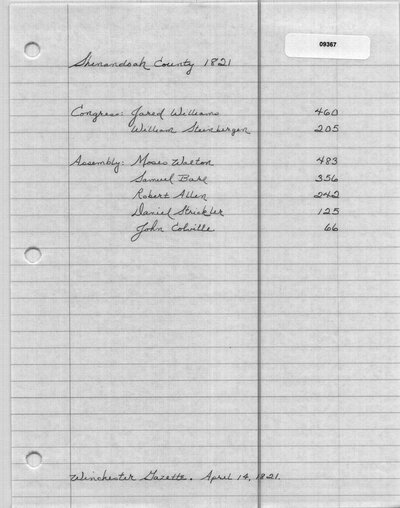 09367
Shenandoah County 1821
Congress: Jared Williams 460
William Steenbergen 205
Assembly: Moses Walton 483
Samuel Bare 356
Robert Allen 242
Daniel Strickler 125
John Colville 66
Winchester Gazette. April 14, 1821.